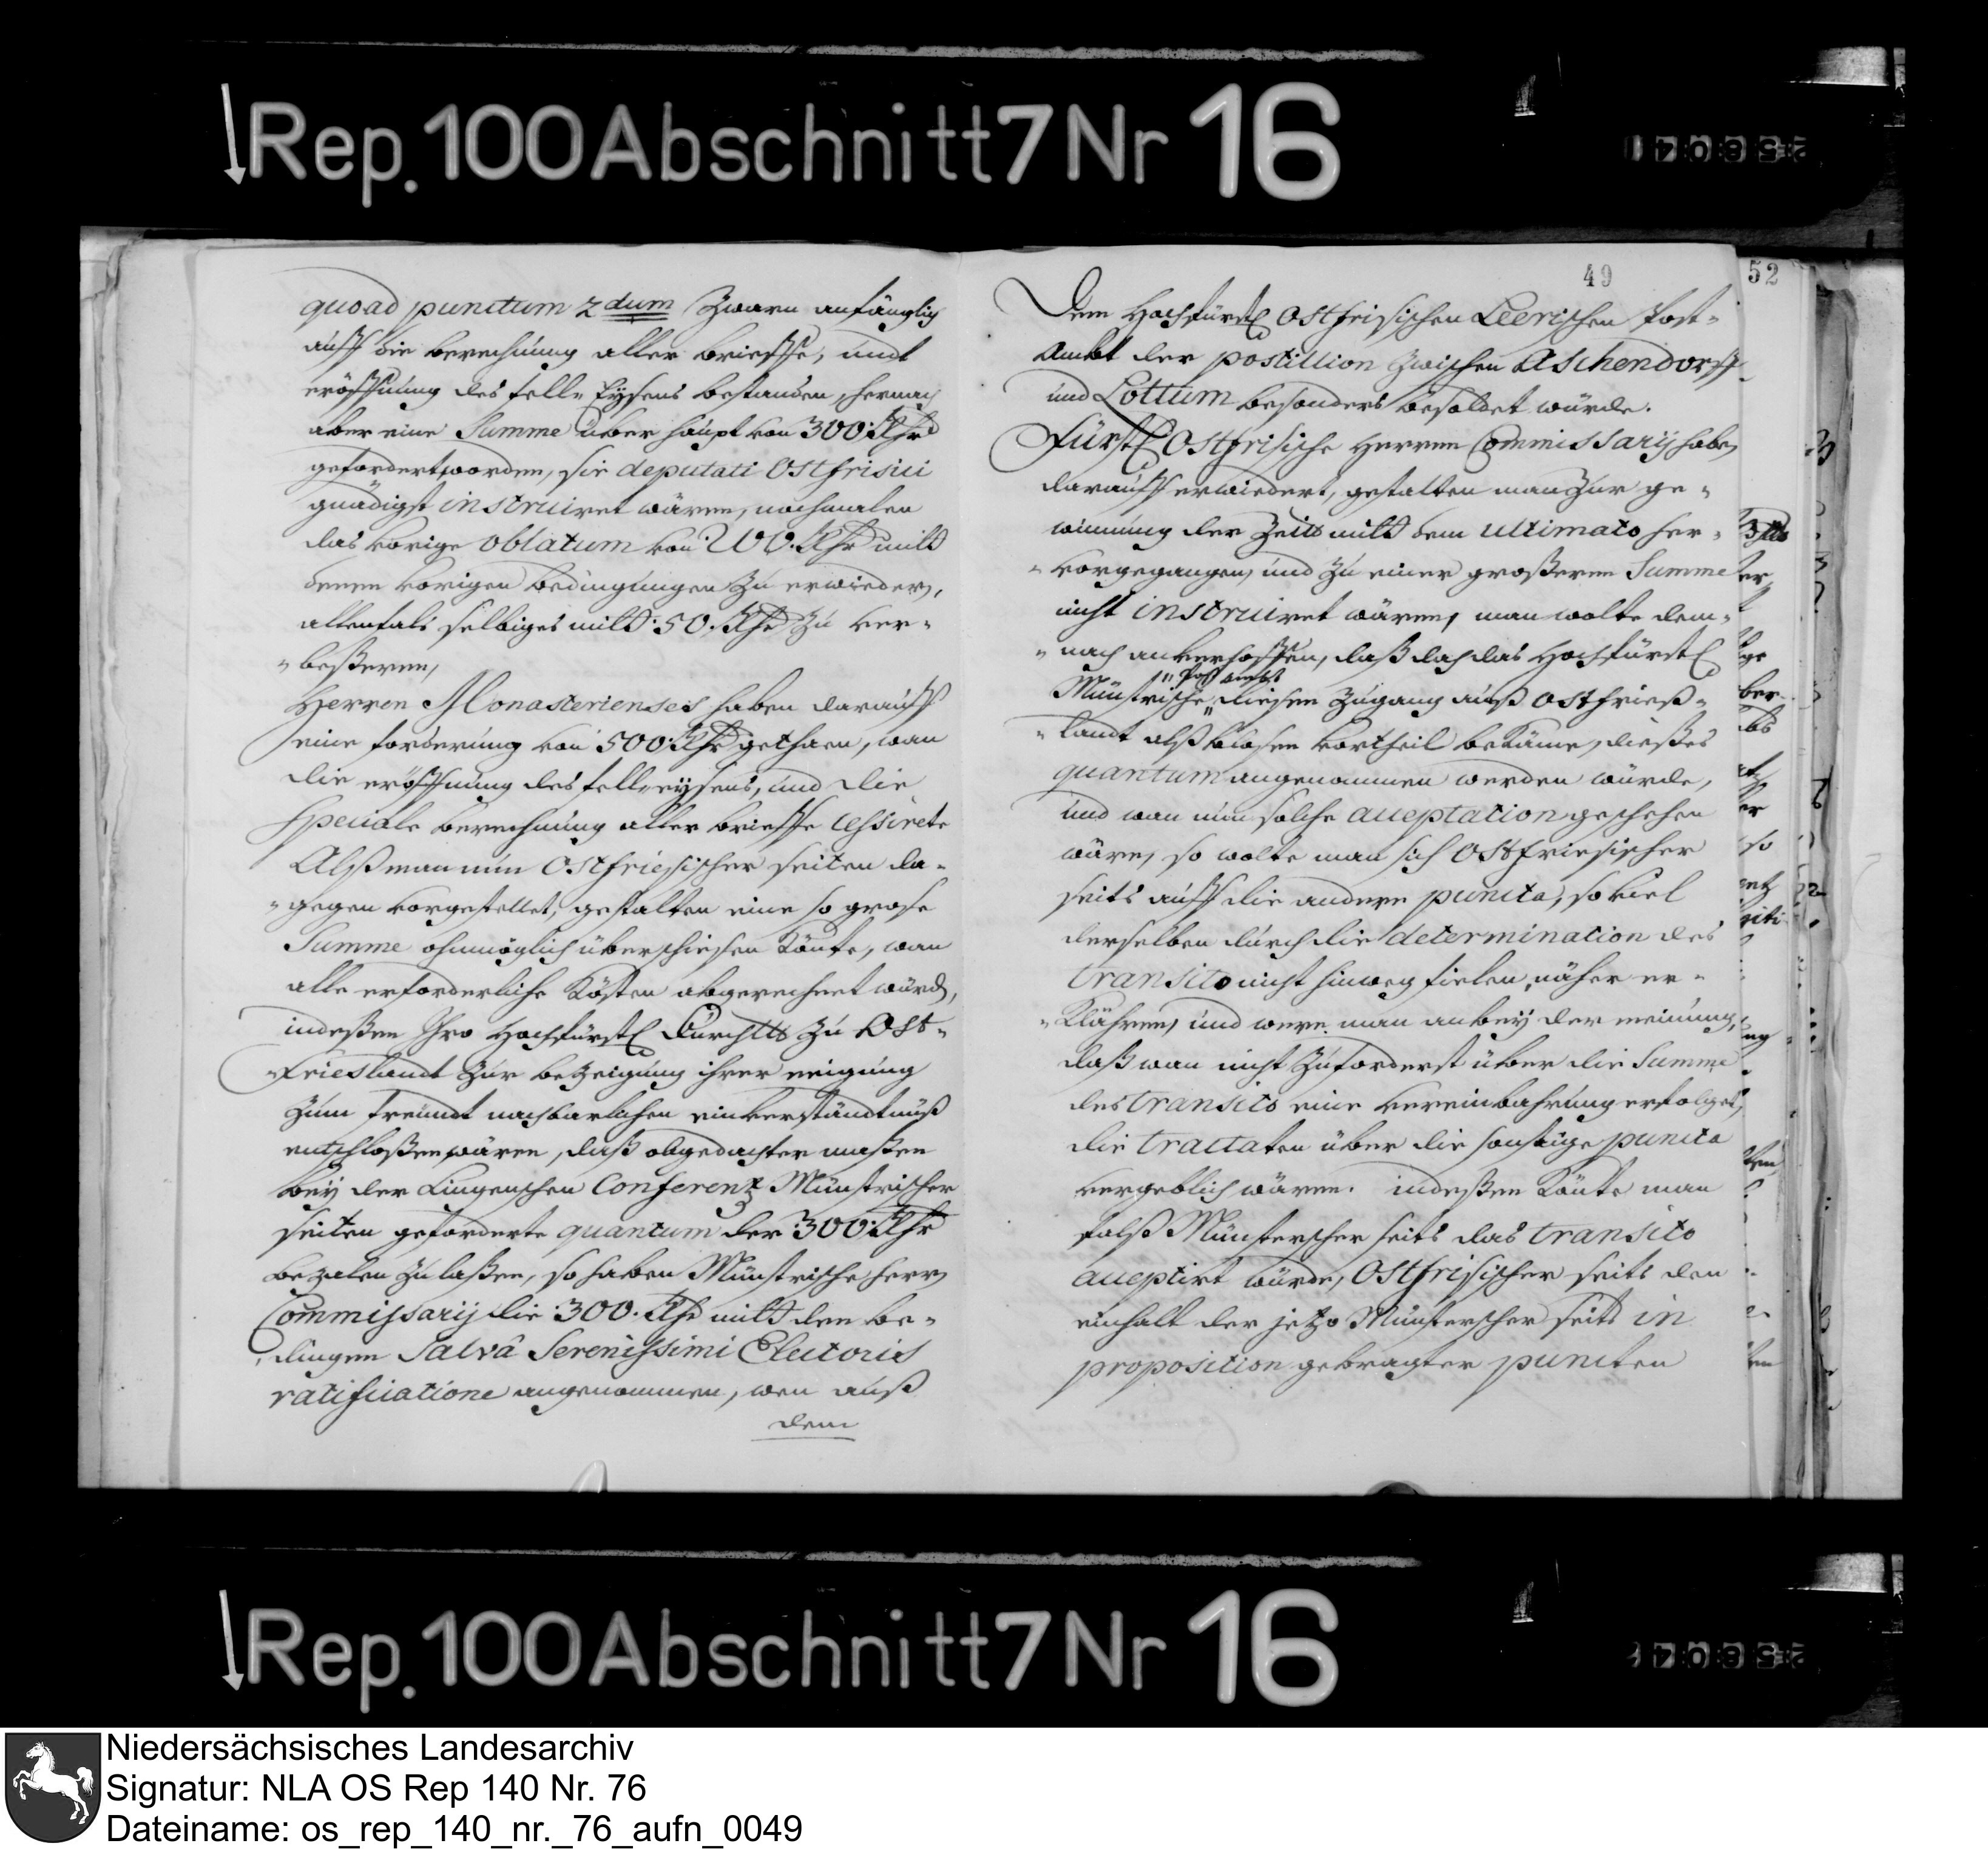 Rep. 100 Abschnitt 7 Nr 16
quoad punctum 2dum zwarn anfänglig
auff die berechnung aller brieffe, undt
eröffnung des fell-Eysens bestanden, hernach
aber eine Summe überhaupt von 300 Rthr
gefordert worden, sie deputati Ostfrisici
gnädigst instruiret wären, nochmalen
das vorige oblatum von 200. Rthr mitt
denen vorigen bedingungen zu erwiedern,
allenfals selbiges mitt 50. Rthr zu ver-
-beßeren,
Herren Monasterienses haben darauff
eine forderung von 500 Rthr gethaen, wan
die eröffnung des felleysens, und die
speciale berechnung aller brieffe cessirete
Alß man nun Ostfriesischer seiten da-
-gegen vorgestellet, gestalten eine so grose
Summe ohnmöglich überschiesen könte, wan
alle erforderliche Kösten abgerechnet würd,
indeßen Ihro Hochfürstl Durchltt zu Ost-
-Frieslandt zur bezeigung ihrer neigung
zum freundt nachbarlichen einverständtnuß
entschloßen wären, daß obgedachter maßen
bey der Lingenschen Conferentz Münstrischer
seiten geforderte quantum der 300 Rthr
bezalen zu laßen, so haben Münstrische herrn
Commissarij die 300. Rthr mitt den be-
-dingen Salvâ Serenissimi Electoris
ratificatione angenommen, wen auß
dem
49
Dem Hochfürstl Ostfrisischen Leerischen Post-
Ambt der postillion zwischen Aschendorff
und Lottum besonders besoldet würde.
Fürstl Ostfrisische Herren Commissarij haben
darauff erwiedert, gestalten man zur ge-
winnung der Zeitt mitt dem ultimato her-
-vorgegangen, und zu einer großeren Summe
nicht instruiret wären, man wolte dem-
-nach anverhoffen, daß doch das Hochfürstl
Post ambt
Münstrische diesen Zugang auß Ostfrieß-
-landt alß blosen vortheil bekäme, dießes
quantum angenommen werden würde,
und wan nun solche acceptation geschehen
wäre, so wolte man sich Ostfriesischer
seits auff die andere puncta, so viel
derselben durch die determination des
transito nicht hinweg fielen, näher er-
-Klähren, und were man anbey der meinung,
daß wan nicht zuforderst über die Summe
des transito eine vereinbahrung erfolget,
die tractaten über die sonstige puncta
vergeblich wären. indeßen Könte man
falß Münsterscher seits das transito
acceptirt würde, Ostfrisischer seits den
einhalt der jetzo Münsterscher seits in
proposition gebragter puncten
52
Rep. 100 Abschnitt 7 Nr 16
Niedersächsisches Landesarchiv
Signatur: NLA OS Rep 140 Nr. 76
Dateiname: os_rep_140_nr._76_aufn_0049